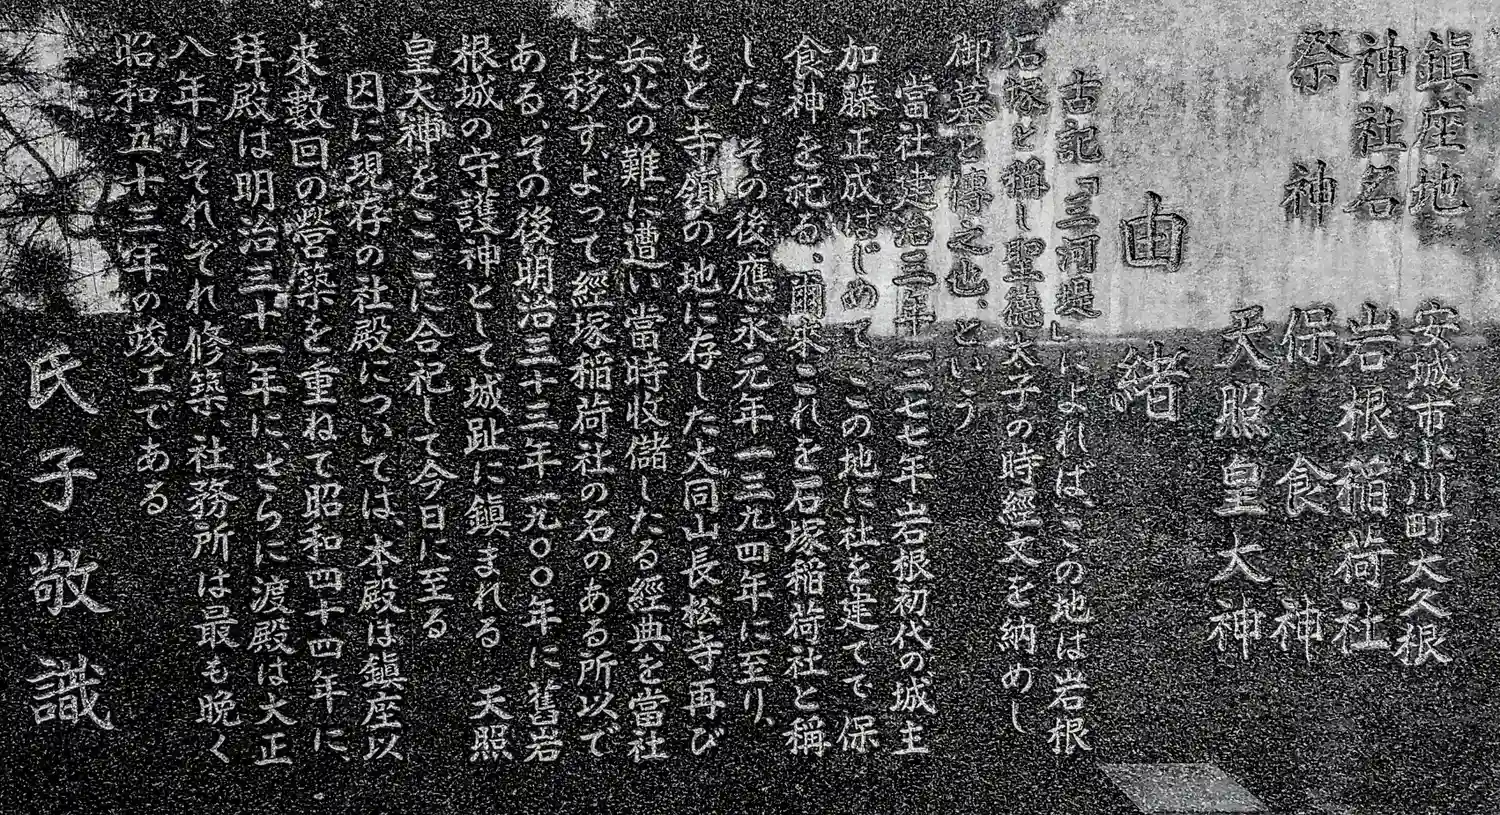 鎭座地　安城市小川町大久根
神社名　岩根稲荷社
祭神　保食神
天照皇大神
由緒
古記「三河堤」によれば、この地は岩根
石塚と稱し聖德太子の時經文を納めし
御墓と傳之也、という
當社建治三年一二七七年岩根初代の城主
加藤正成はじめてこの地に社を建てて保
食神を祀る、爾来これを石塚稲荷社と稱
した、その後應永元年一三九四年に至り、
もと寺領の地に存した大同山長松寺再び
兵火の難に遭い當時收儲したる經典を當社
に移す、よって經塚稲荷社の名のある所以で
ある、その後明治三十三年一九〇〇年に舊岩
根城の守護神として城趾に鎭まれる　天照
皇大神をここに合祀して今日に至る
因に現存の社殿については、本殿は鎭座以
来數回の營築を重ねて昭和四十四年に、
拜殿は明治三十一年に、さらに渡殿は大正
八年にそれぞれ修築、社務所は最も晩く
昭和五十三年の竣工である
氏子敬識